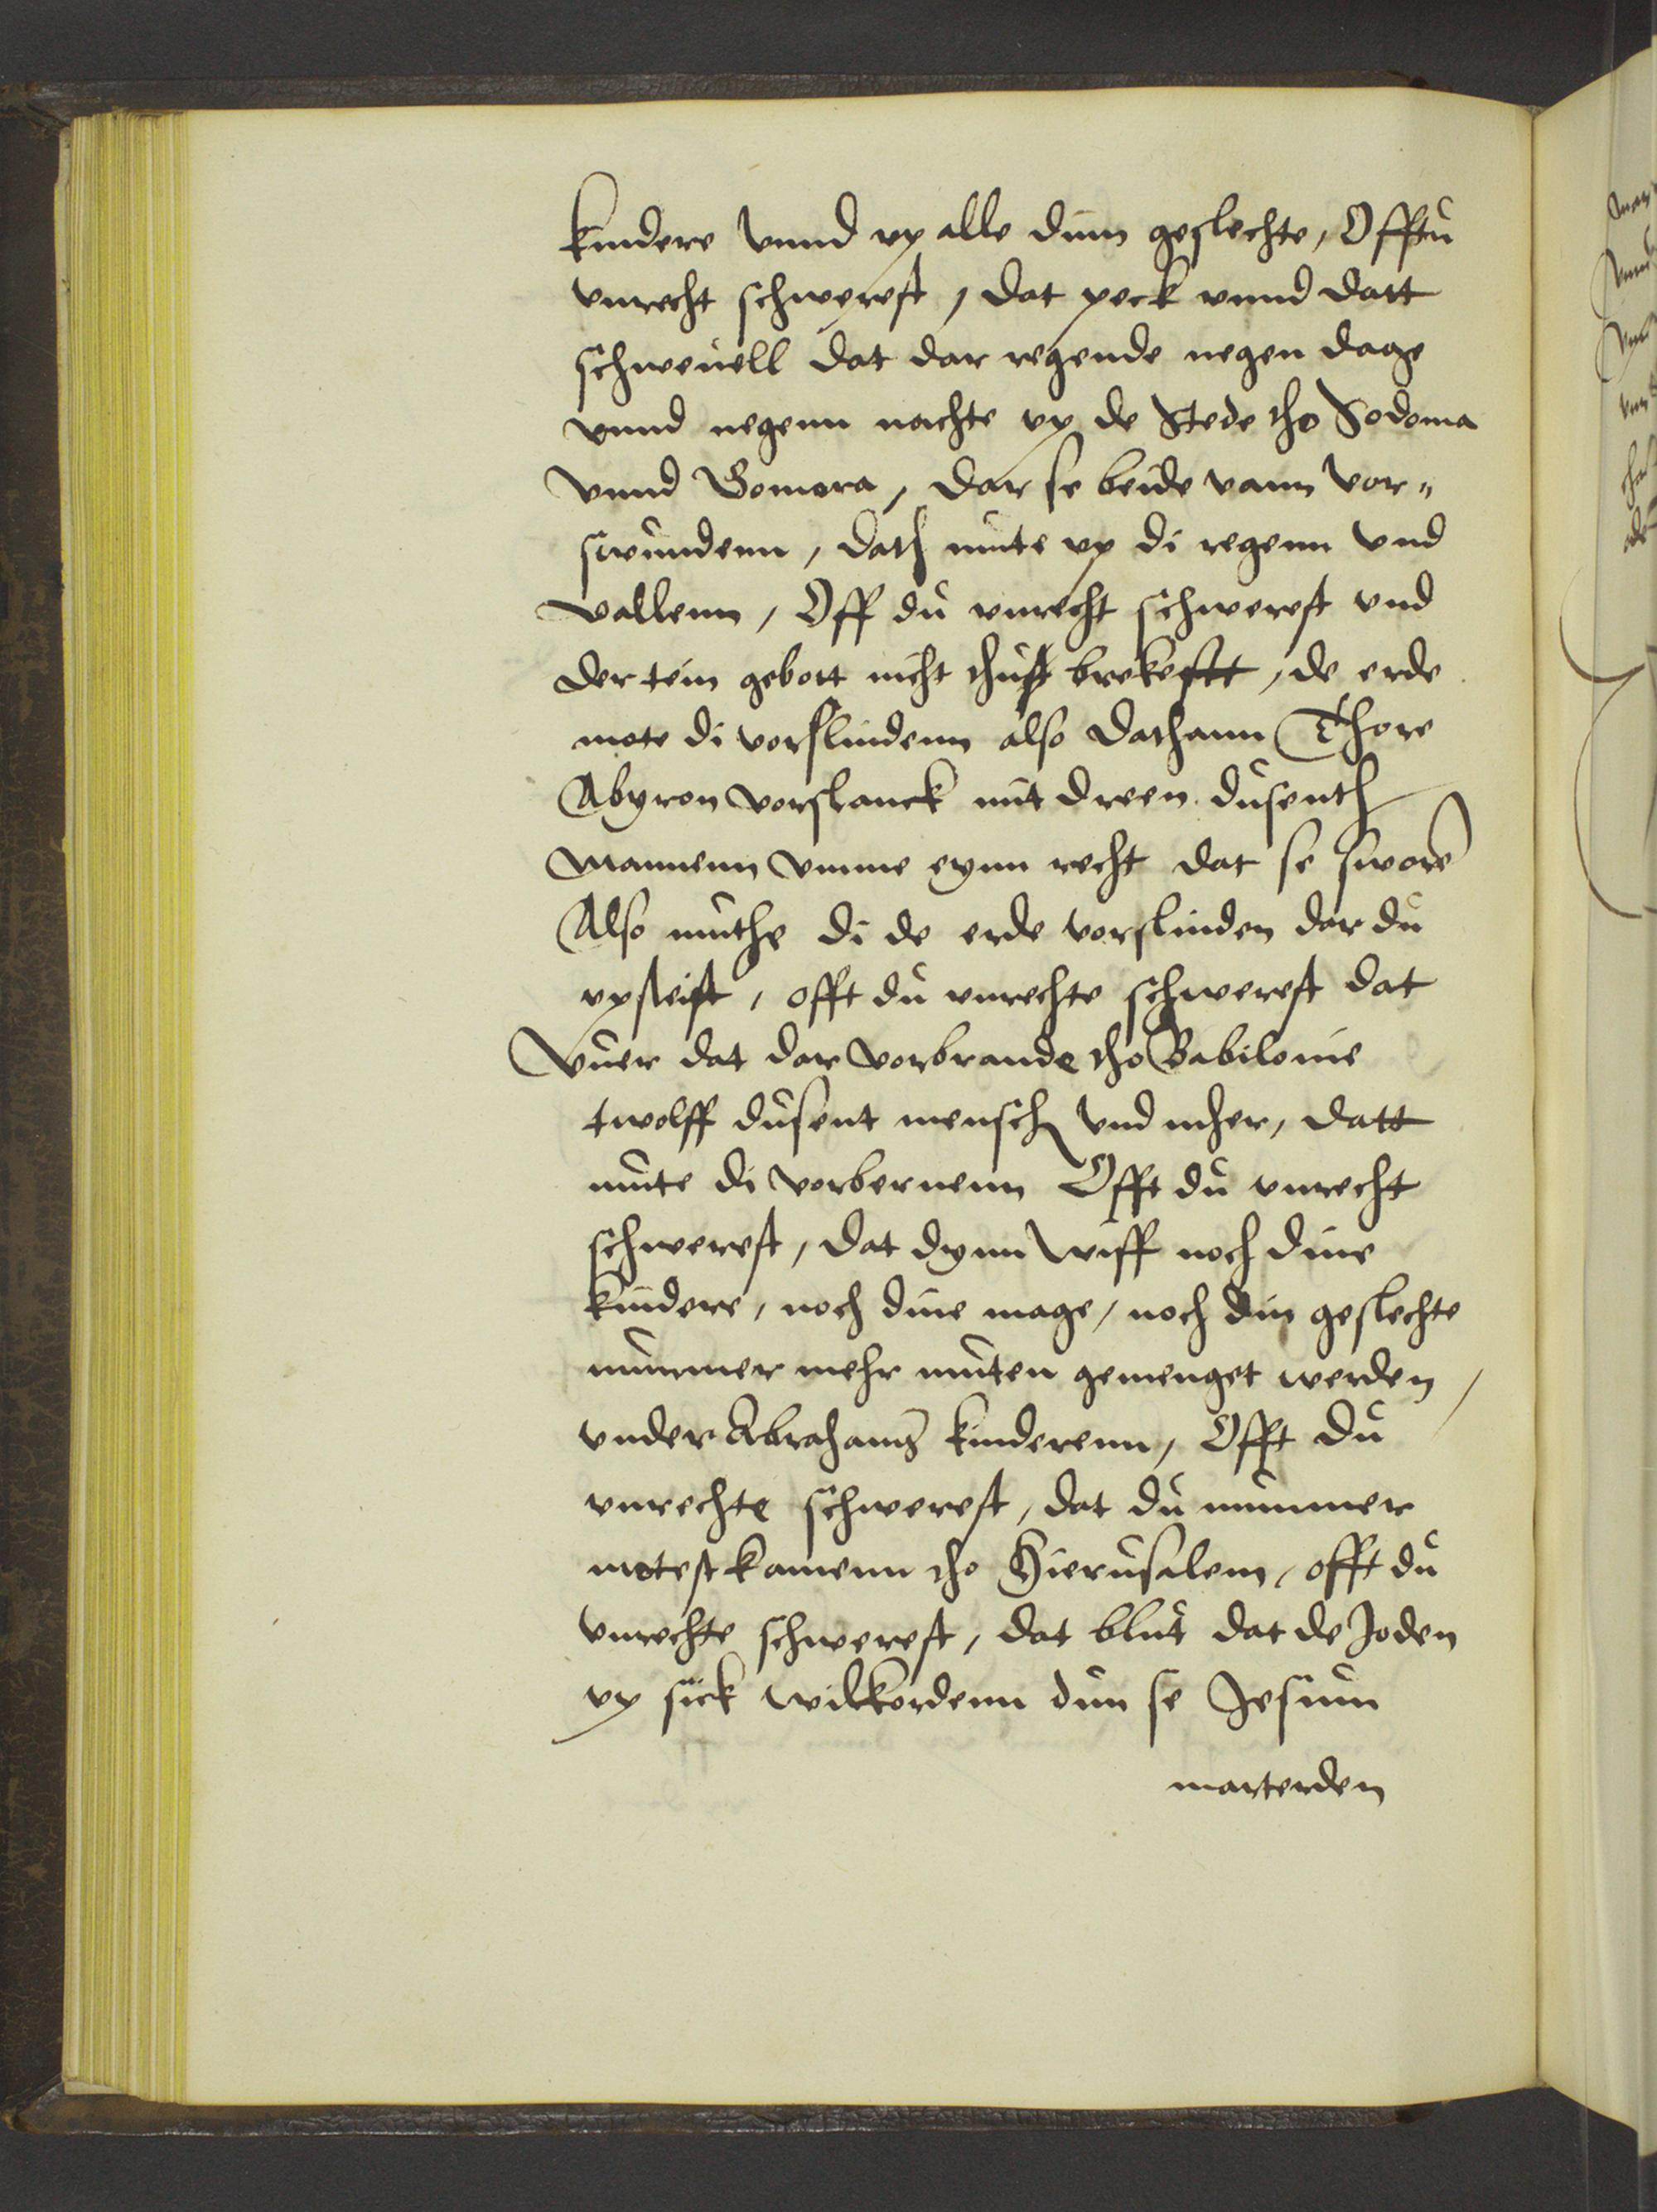 kindere vnnd vp alle dinn geslechte, Offtu
vnrecht schwerest, dat peck vnnd datt
schwevell dat dar regende negen dage
vnnd negenn nachte vp de Stede tho Sodoma
vnnd Gomora, dar se beide vann vor„
swundenn, dath mute vp di regenn vnd
vallenn, Off du vnrecht schwerest vnd
der tein gebott nicht thust brekestt, de erde
mote di vorslindenn also Dathann Chore
Abyron vorslanck mit dreen dusenth
Mannenn vmme eynn recht dat se swore
Also muthe di de erde vorslinden dar du
vpsteist, offt du vnrechte schwerest dat
vuer dat dar vorbrande tho Babilonie
twolff dusent mensch vnd mher, datt
mute di vorbernenn Offt du vnrecht
schwerest, dat dynn wiff noch dine
kindere, noch dine mage, noch din geslechte
nummer mehr muten gemenget werden
vnder Abrahams kinderenn, Offt du
vnrechte schwerest, dat du nummer
motest kamenn tho Hierusalem, offt du
vnrechte schwerest, dat blut dat de Joden
vp sick wilkordenn dun se Jesum
marterden